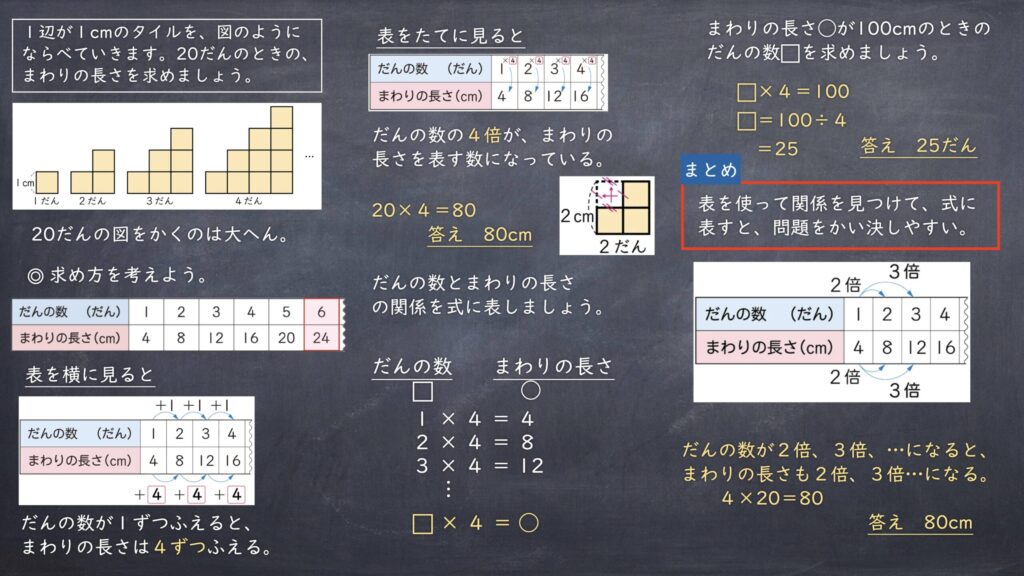 1辺が1cmのタイルを、図のように
ならべていきます。20だんのときの、
まわりの長さを求めましょう。
1cm
1だん 2だん 3だん 4だん …
20だんの図をかくのは大へん。
◎求め方を考えよう。
だんの数 (だん) 1 2 3 4 5 6
まわりの長さ(cm) 4 8 12 16 20 24
表を横に見ると
+1 +1 +1
だんの数 (だん) 1 2 3 4
まわりの長さ(cm) 4 8 12 16
+4 +4 +4
だんの数が1ずつふえると、
まわりの長さは4ずつふえる。
表をたてに見ると
×4 ×4 ×4 ×4
だんの数 (だん) 1 2 3 4
まわりの長さ(cm) 4 8 12 16
だんの数の4倍が、まわりの
長さを表す数になっている。
20×4=80
答え 80cm
2cm
2だん
だんの数とまわりの長さ
の関係を式に表しましょう。
だんの数 まわりの長さ
□ ○
1 × 4 = 4
2 × 4 = 8
3 × 4 = 12
⋮
□ × 4 = ○
まわりの長さ○が100cmのときの
だんの数□を求めましょう。
□×4=100
□=100÷4
=25
答え 25だん
まとめ
表を使って関係を見つけて、式に
表すと、問題をかい決しやすい。
3倍
2倍
だんの数 (だん) 1 2 3 4
まわりの長さ(cm) 4 8 12 16
2倍
3倍
だんの数が2倍、3倍、…になると、
まわりの長さも2倍、3倍…になる。
4×20=80
答え 80cm